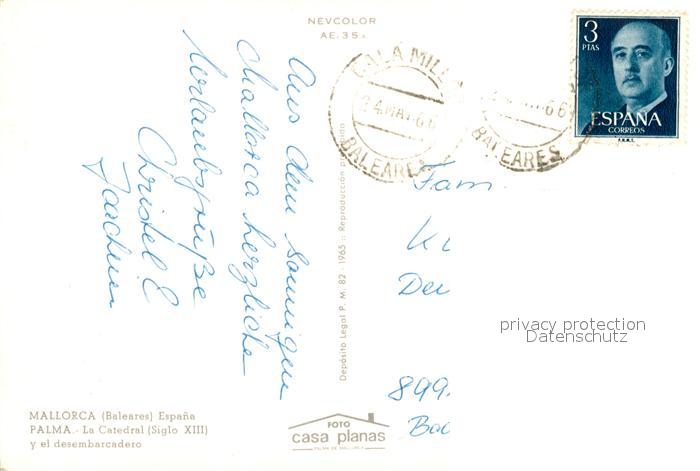 NEVCOLOR
AE. 35
Aus dem sonnigen
Mallorca herzliche
Urlaubsgrüße
Christel &
Joachim
Depósito Legal P. M. 82 - 1965 :: Reproducción
CALA MILLOR
24 MAY 66
BALEARES
66
BALEARES
3
PTAS
ESPAÑA
CORREOS
F.N.M.T.
Fam
Ki
Deu
899
privacy protection
Datenschutz
MALLORCA (Baleares) España
PALMA.- La Catedral (Siglo XIII)
y el desembarcadero
FOTO
casa planas
PALMA DE MALLORCA